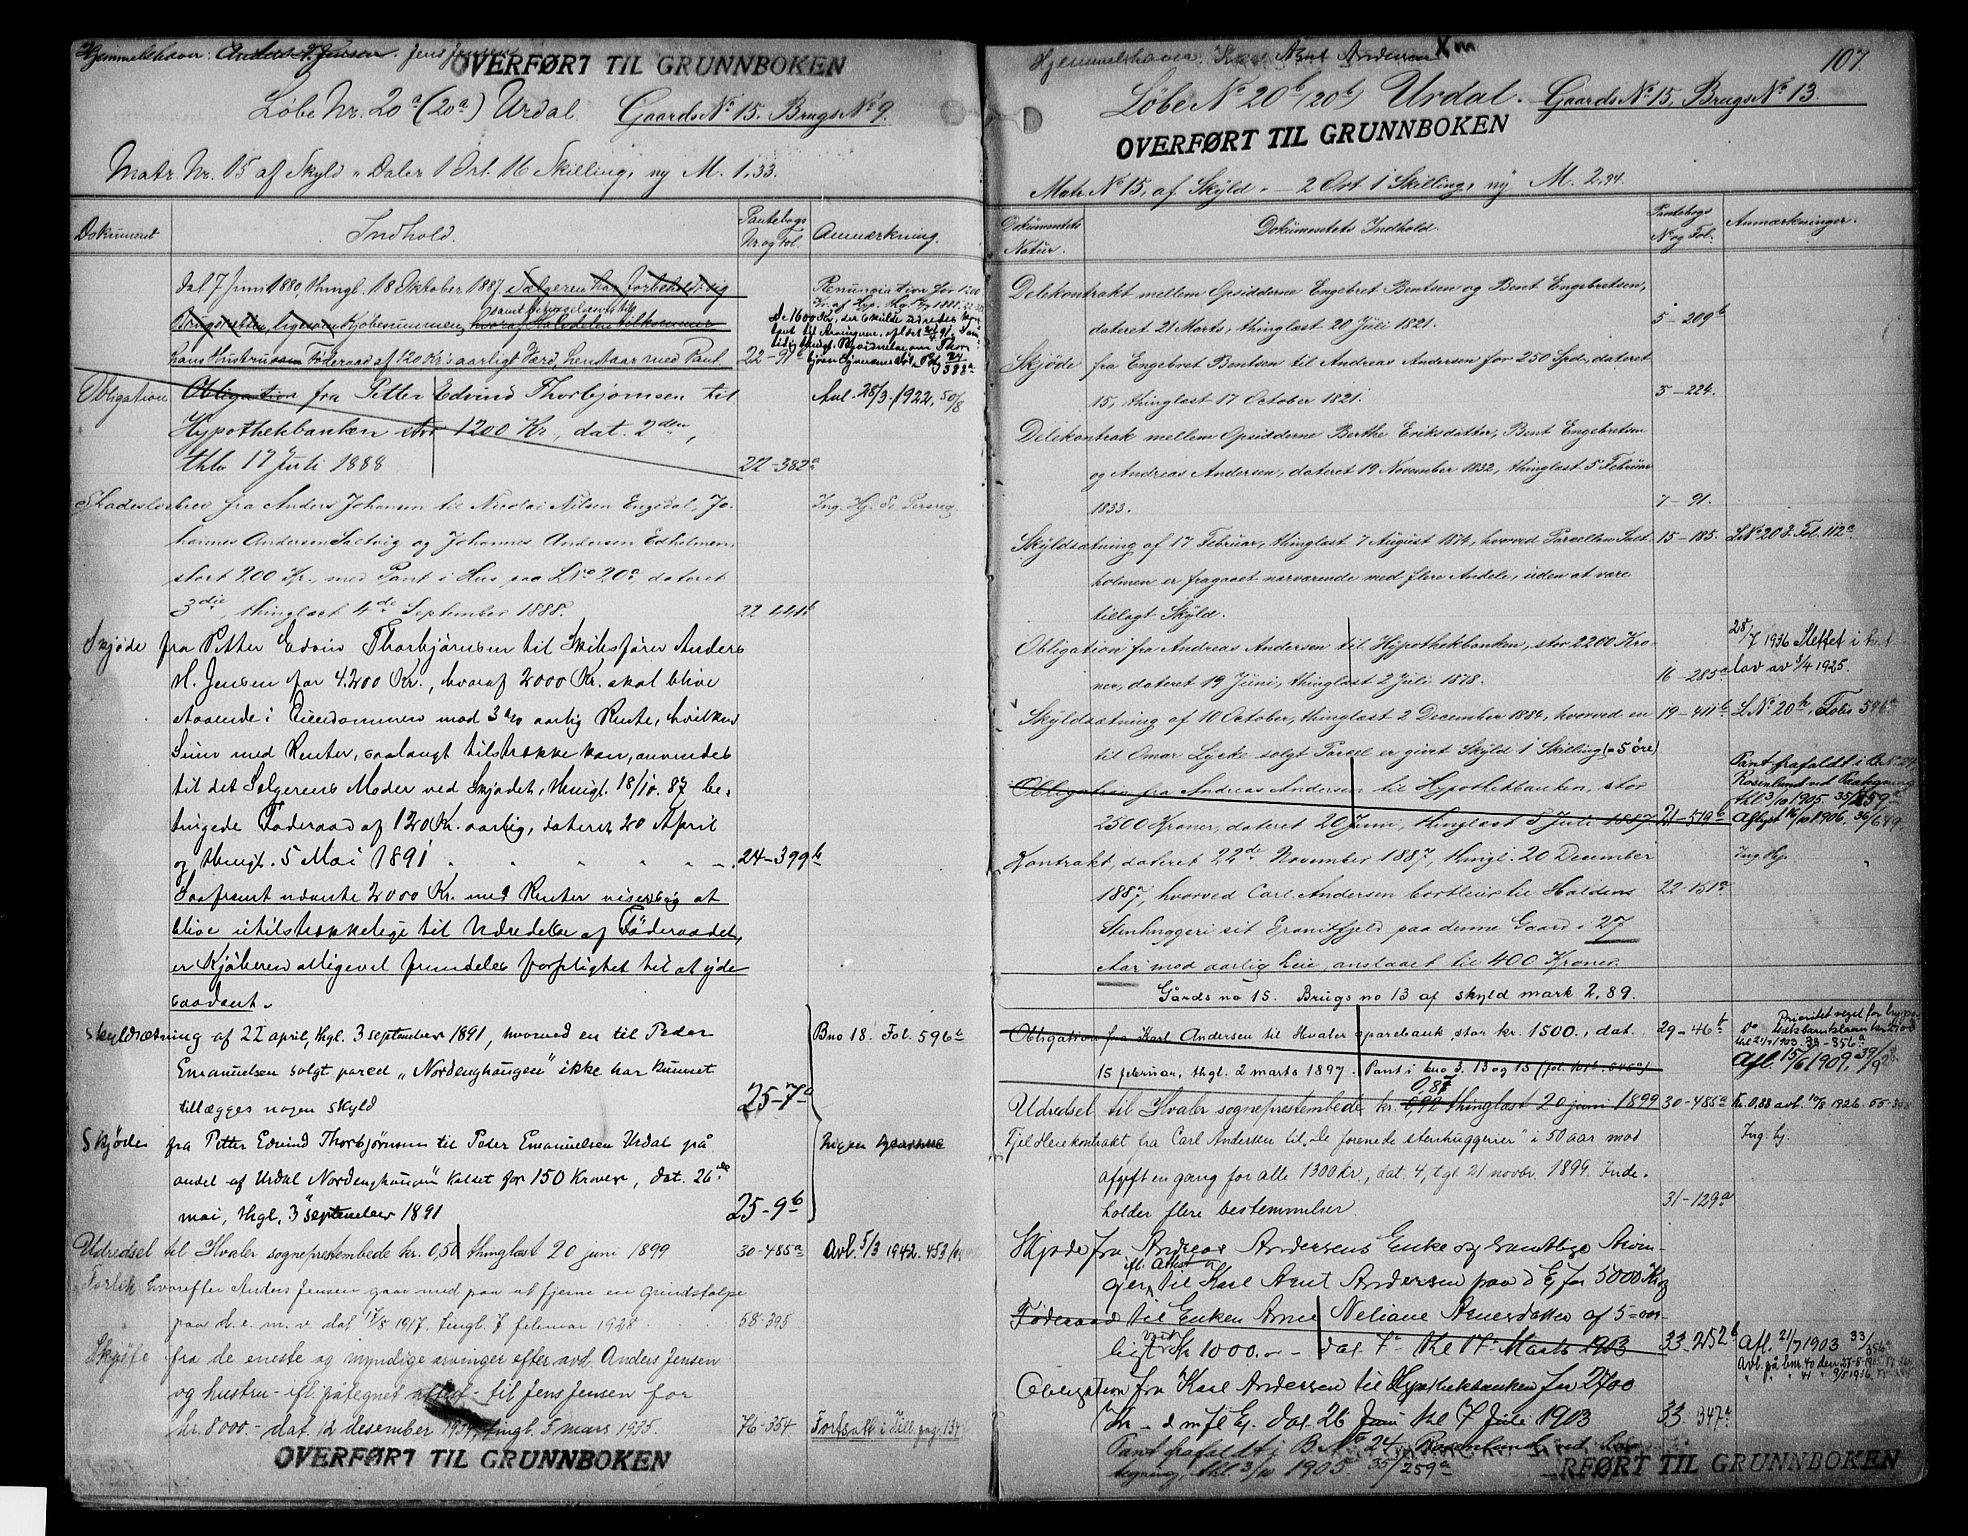 Hjemmelshaver: Anders H. Jensen. Jens Jensen
OVERFØRT TIL GRUNNBOKEN
Løbe Nr. 20a (20a) Urdal. Gaards No 15. Brugs No 9.
Matr. Nr. 15 af Skyld " Daler 1 Ort. 16 Skilling, ny M. 1,33.
Dokument
Indhold.
Pantebogs Nr. og Fol.
Anmærkning.
dat. 7 Juni 1880, thingl. 18 Oktober 1887. Sælgeren har forbeholdt sig
Brugsretten, ligesom Kjøbesummen, hvoraf Halvdelen tilkommer
hans Hustru Føderaad af 120 Kr. i aarligt Værd, Leustaar med Pant 22-91b
Renunciation for 1200
Obligation
Obligation fra Petter Edvind Thorbjørnsen til Avl. 28/3. 1922, 50/8
Hypothekbanken stor 1200 Kr., dat. 2den,
thlv 17 Juli 1888 22-382a
Skadesløsbrev fra Anders Johansen til Nicolai Nilsen Engsdal, Jo- Ing. Hj. Se Persreg
hannes Andersen Saltvig og Johannes Andersen Edholmen,
stort 200 Kr., med Pant i Hus paa LNo 20a, dateret
3die, thinglæst 4de September 1888. 22 441b
Skjøde fra Petter Edvin Thorbjørnsen til Skibsfører Anders
H. Jensen for 4.200 Kr., hvoraf 2000 Kr. skal blive
staaende i Eiendommen mod 3% aarlig Rente, hvilken
Sum med Renter, saalangt tilstrække kan, anvendes
til det Sælgerens Moder ved Skjødet, thingl. 18/10. 87 be-
tingede Føderaad af 120 Kr. aarlig, dateret 20 April
og thingl. 5 Mai 1891 24-399b
Saafremt nævnte 2000 Kr. med Renter viser sig at
blive utilstrækkelige til Udredelse af Føderaadet,
er Kjøberen alligevel fremdeles forpligtet til at yde
saadant.
Skyldsætning af 22 april, thgl. 3 september 1891, hvorved en til Peder Bno 18. Fol. 596b
Emanuelsen solgt parcel „Nordenghaugen" ikke har kunnet
tillægges nogen skyld 25-7a
Skjøde fra Petter Edvind Thorbjørnsen til Peder Emanuelsen Urdal på Ingen
andel af Urdal „Nordenghaugen" kaldet for 150 kroner, dat. 26de
mai, thgl. 3 september 1891 25-9b
Udredsel til Hvaler sogneprestembede kr. 0,50 thinglæst 20 juni 1899 30-485a Avl. 5/3 1942. 453/
Forlik hvorefter Anders Jensen gaar med paa at fjerne en grindstolpe
paa d. e. m. v. dat. 17/8 1917. tingl. 7 februar 1928 58-395
Skjøte fra de eneste og myndige arvinger efter avd. Anders Jensen
og hustru - ifl. påtegnet attest - til Jens Jensen for
kr. 8000.- dat. 12 desember 1934, tingl. 5 mars 1935. 76-354 Fortsatt i Till. pag. 134
OVERFØRT TIL GRUNNBOKEN
Hjemmelshaver: Karl Arnt Andersen
107.
Løbe No 20b (20b) Urdal. Gaards No 15, Brugs No 13.
OVERFØRT TIL GRUNNBOKEN
Matr. No 15, af Skyld. - 2 Ort 1 Skilling, ny M. 2,94.
Dokumentets Natur.
Dokumentets Indhold.
Pantebogs No og Fol.
Anmærkninger.
Delekontrakt mellem Opsidderne Engebret Bentsen og Bent Engebretsen,
dateret 21 Marts, thinglæst 20 Juli 1821. 5-209b
Skjøde fra Engebret Bentsen til Andreas Andersen for 250 Spd., dateret
15, thinglæst 17 October 1821. 5-224.
Delekontrak mellem Opsidderne Berthe Eriksdatter, Bent Engebretsen
og Andreas Andersen, dateret 19 November 1832, thinglæst 5 Februar
1833. 7-91.
Skyldsætning af 17 Februar, thinglæst 7 August 1874, hvorved Parcellen Salt- 15-185. LNo 20 d. Fol. 112a
holmen er fragaaet nærværende med flere Andele, uden at være
tillagt Skyld.
Obligation fra Andreas Andersen til Hypothekbanken, stor 2200 Kro- 28/7 1936 Slettet i hht
ner, dateret 19 Juni, thinglæst 2 Juli 1878. 16-285a lov av 3/4 1925.
Skyldsætning af 10 October, thinglæst 2 December 1886, hvorved en 19-411b L No 20h, Folio 596a
til Omar Lycke solgt Parcel er givet Skyld 1 Skilling (= 5 öre)
Obligation fra Andreas Andersen til Hypothekbanken, stor
2500 Kroner, dateret 20 Juni, thinglæst 5 Juli 1887. 21-579b
Pant frafaldt i B.No 24
Rosenlund ved Paategning
thl 3/10 1905 35/259a
Aflyst 16/10 1906. 36/649.
Kontrakt, dateret 22de November 1887, thingl. 20 Desember Ing. Hj.
1887, hvorved Carl Andersen bortleier til Haldens 22-151a
Stenhuggeri sit Granitfjeld paa denne Gaard i 27
Aar mod aarlig Leie, anslaaet til 400 Kroner.
Gårds no 15. Brugs no 13 af skyld mark 2,89.
Obligation fra Karl Andersen til Hvaler sparebank, stor kr. 1500., dat. 29-46b
15 februar, thgl. 2 marts 1897. Pant i bno 3. 13 og 15
Prioritet veget for hypo-
thl 21/7 1903 33-356a
Afl. 15/6 1909, 39/
0,87
Udredsel til Hvaler sogneprestembede kr. 0,92 thinglæst 20 juni 1899 30-485a Kr. 0,88 avl. 10/8 1926. 55-
Fjeldleiekontrakt fra Carl Andersen til „De forenede stenhuggerier" i 50 aar mod Ing. hj.
afgift en gang for alle 1300 kr., dat. 4, tgl. 21 novbr. 1899. Inde-
holder flere bestemmelser 31-129a
Skjøde fra Andreas Andersens Enke og samtlige Arvin-
ifl. Attest
ger, til Karl Arnt Andersen paa d E for 5000 Kr og
Føderaad til Enken Anne Neliane Arnesdatter af 5-aar-
ligt værd Kr 1000.- dat. 7- thl 17- Marts 1903 33-252b Afl. 21/7 1903 33/356a
Obligation fra Karl Andersen til Hypothekbanken for 2700
Kr - d m fl Ej. dat. 26 Juni thl 7 Juli 1903 33 347a
Pant frafaldt i B No 24 Rosenlund ved Paa-
tegning, thl 3/10 1905. 35/259a
RFØRT TIL GRUNNBOKEN